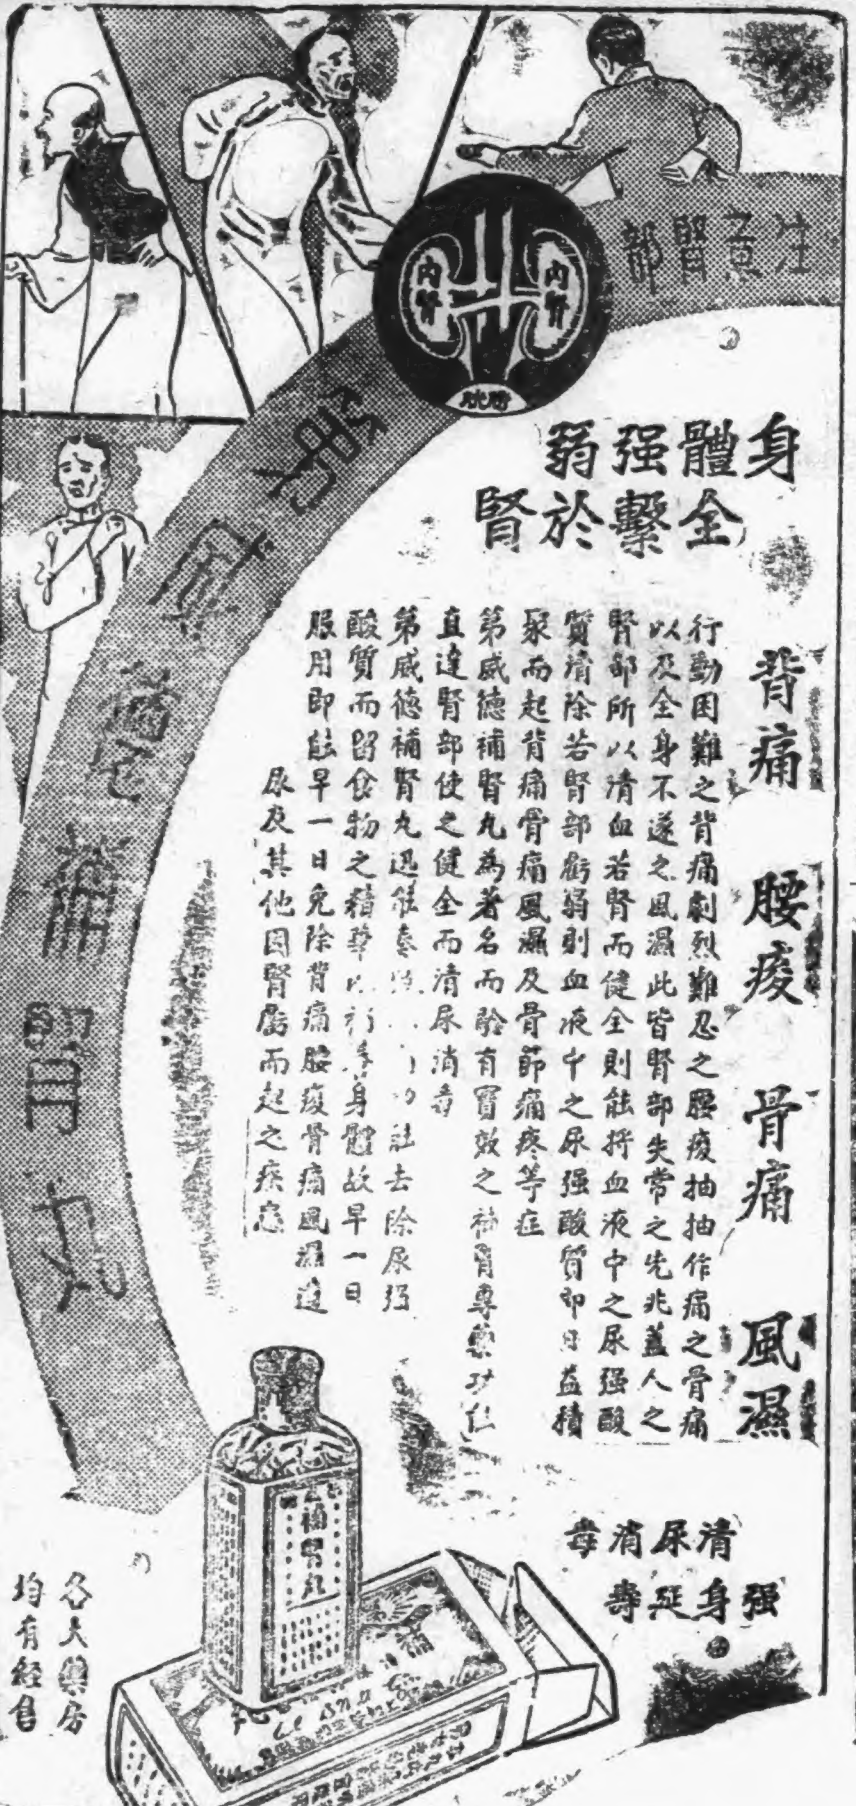 注意腎部
內腎
內腎
膀胱
第威德補腎丸
身體强弱
全繫於腎
背痛 腰痠 骨痛 風濕
行動困難之背痛劇烈難忍之腰痠抽抽作痛之骨痛
以及全身不遂之風濕此皆腎部失常之先兆蓋人之
腎部所以清血若腎而健全則能將血液中之尿强酸
質清除若腎部虧弱則血液中之尿强酸質卽日益積
聚而起背痛骨痛風濕及骨節痛疼等症
第威德補腎丸為著名而驗有實效之補腎專藥功能
直達腎部使之健全而清尿消毒
第威德補腎丸迅能去除尿强
酸質而留食物之精華以身體故早一日
服用卽能早一日免除背痛腰痠骨痛風濕
尿及其他因腎虧而起之疾患
清尿消毒
强身延壽
補腎丸
各大藥房
均有經售